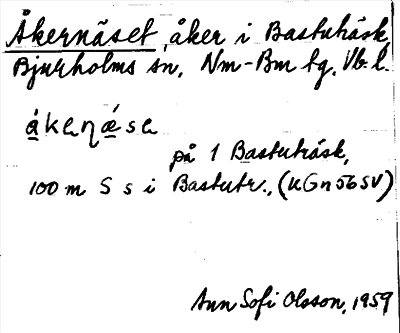 Åkernäset, åker i Bastuträsk
Bjurholms sn, Nm-Bm tg. Vb. l.
på 1 Bastuträsk,
100 m S s i Bastutr., (KGn56SV)
Ann Sofi Olsson, 1959